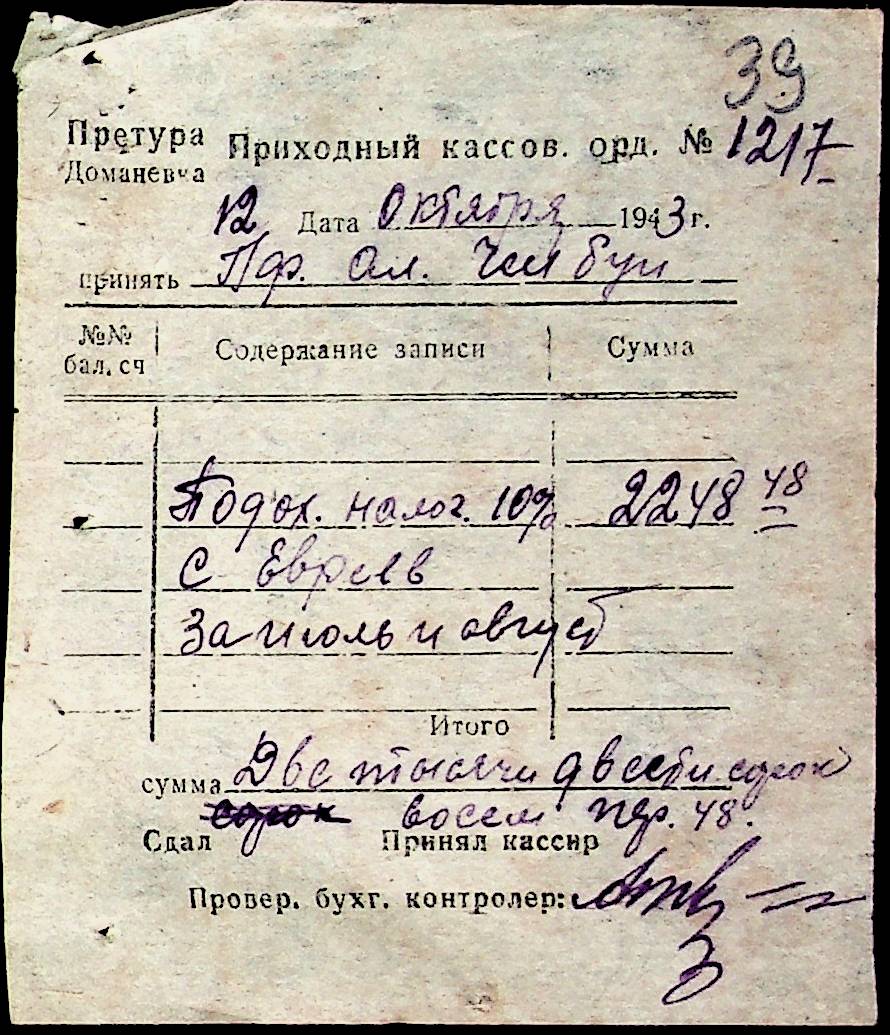 39
Претура Приходный кассов. орд. № 1217
Доманевка
12 Дата Октября 1943 г.
принять Пф. Ал.
№№ бал. сч Содержание записи Сумма
Подох. налог. 10% 2248 48
С Евреев
За июль и август
Итого
сумма Две тысячи двести сорок
сорок восем пф. 48.
Сдал Принял кассир
Провер. бухг. контролер: